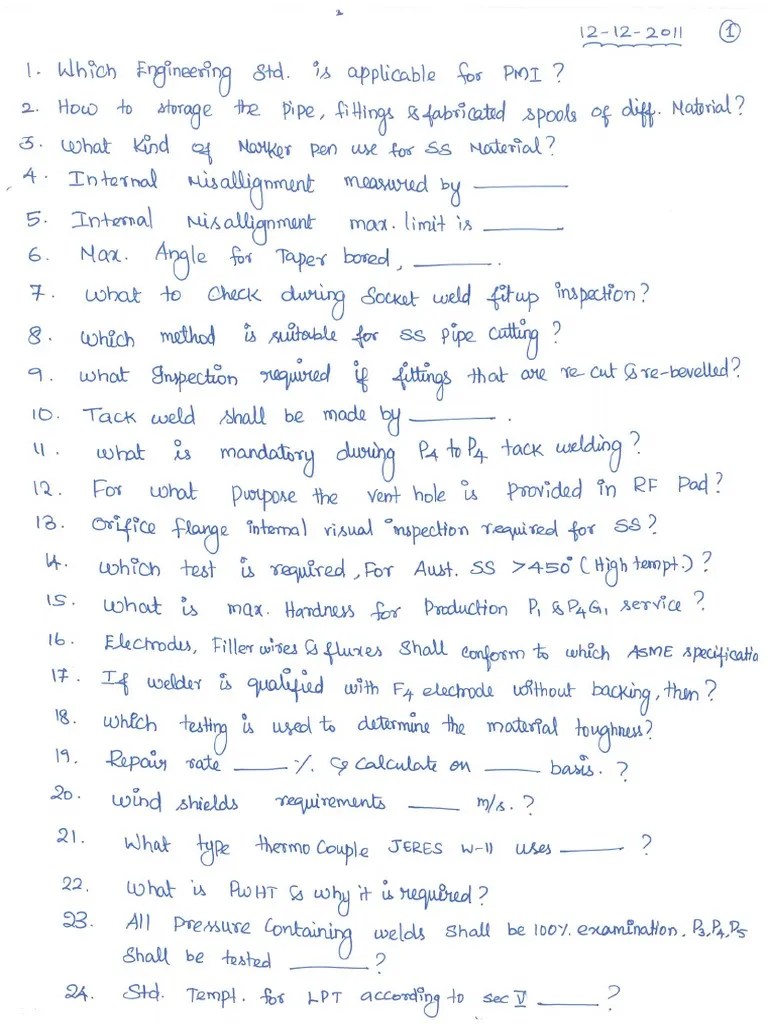 2
12-12-2011 1
1. Which Engineering Std. is applicable for PMI ?
2. How to storage the Pipe, fittings & fabricated spools of diff. Material?
3. What Kind of Marker pen use for SS Material?
4. Internal Misallignment measured by ______
5. Internal Misallignment max. limit is ______
6. Max. Angle for Taper bored, ______.
7. What to Check during Socket weld fitup inspection?
8. Which method is suitable for SS Pipe Cutting ?
9. What Inspection required if fittings that are re-cut & re-bevelled?
10. Tack weld shall be made by ______ .
11. What is mandatory during P4 to P4 tack welding ?
12. For what purpose the vent hole is Provided in RF Pad?
13. Orifice flange internal visual inspection required for SS?
14. Which test is required, For Aust. SS >450° (High tempt.) ?
15. What is max. Hardness for Production P1 & P4G1 service ?
16. Electrodes, Filler wires & fluxes Shall conform to which ASME specificatio
17. If welder is qualified with F4 electrode without backing, then?
18. Which testing is used to determine the material toughness?
19. Repair rate ______ %. & Calculate on ______ basis. ?
20. Wind shields requirements ______ m/s. ?
21. What type thermo Couple JERES W-11 uses ______ ?
22. What is PWHT & why it is required?
23. All Pressure Containing welds Shall be 100% examination. P3,P4,P5
Shall be tested ______ ?
24. Std. Tempt. for LPT according to sec V ______ ?